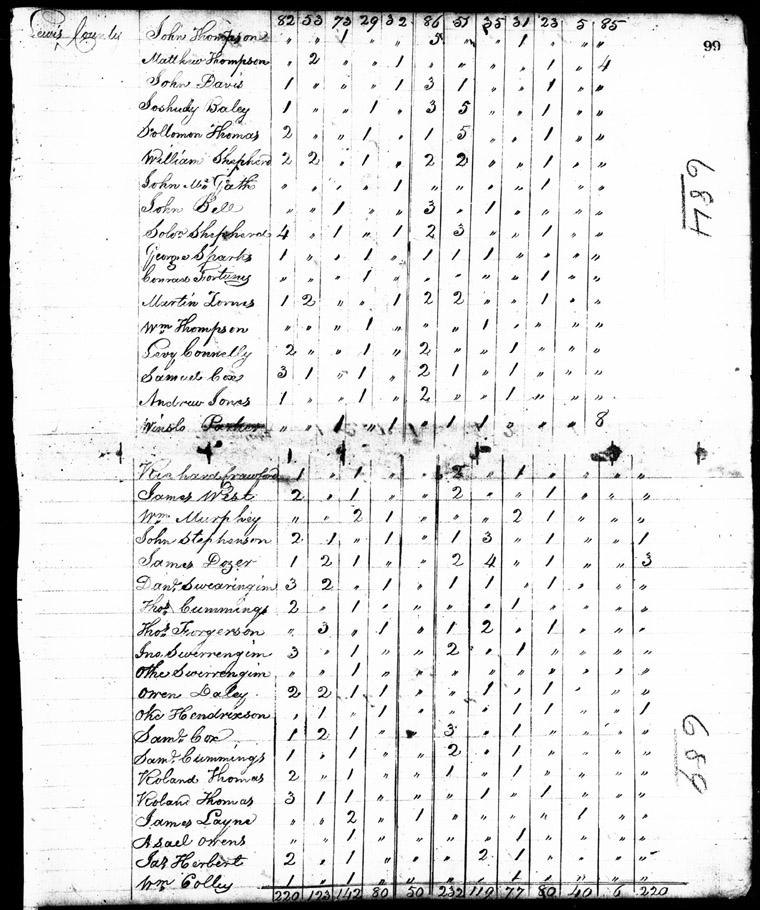 82 53 73 29 32 86 51 35 31 23 5 85
Lewis County John Thompson " " 1 " " 5 " " 1 " " "
99
Matthew Thompson " 2 " " 1 " " " " 1 " 4
John Davis 1 " " " 1 3 1 " " 1 " "
Joshudy Baley 1 " " 1 " 3 5 " " 1 " "
Sollomon Thomas 2 " " 1 " 1 5 " " 1 " "
William Shepherd 2 2 " 1 " 2 2 " " 1 " "
John Mc Gath " " " " 1 " " " " 1 " "
684
John Bell " " 1 " " 3 " 1 " " " "
Solo. Shepherd 4 " 1 " 1 2 3 " " 1 " "
George Sparks 1 " " 1 " 1 1 1 " " " "
Conrad Fortunes " " " 1 " " " " " 1 " "
Martin Tomes 1 2 " " 1 2 2 " " 1 " "
Wm Thompson " " " 1 " " " 1 " " " "
Levy Connelly 2 " " 1 " 2 " " 1 " " "
Samuel Cox 3 1 " 1 " 2 1 " 1 " " "
Andrew Jones 1 " " 1 " 2 " " 1 " " "
Winslo Parker " " 1 " 1 " 1 1 " " " 8
Crawford 1 " 1 " " " 2 " 1 " " " "
James West 2 " 1 " " " 2 " " 1 " " "
Wm Murphey " " 2 1 " " " " 2 1 " " "
John Stephenson 2 1 " 1 " 1 3 " 1 " " 1
James Dozer 1 2 1 " " 2 4 " 1 " " 3
Danl. Swearingim 3 2 " 1 " 1 1 " 1 " " "
Thos. Cummings 2 " 1 " " " " 1 " " " "
Thos. Forgerson " 3 " 1 " 1 2 " 1 " " "
Jno. Swerrengim 3 " 1 " " 2 " 1 " " " "
Othe Swerrengim " " 1 " " " " " " " " "
Owen Daley 2 2 1 1 " " 1 " 1 " " "
Oke Hendrixson " 1 " 1 " " " 1 1 " " 1
Saml. Cox 1 2 1 " " 3 " 1 " " " "
Saml. Cummings 1 " 1 " " 2 " 1 " " " "
689
Roland Thomas 2 " 1 " " 1 " 1 " " " "
Rolan Thomas 3 1 1 " " " 1 " 1 " " "
James Layne " " 2 " 1 " " " " 1 " "
Asael Owens " " 1 " " " " 1 " " " "
Jas. Herbert 2 " 1 " " " 2 1 " " " "
Wm Colley 1 " 1 " " " " 1 " " " "
220 123 142 80 50 232 119 77 80 40 6 220